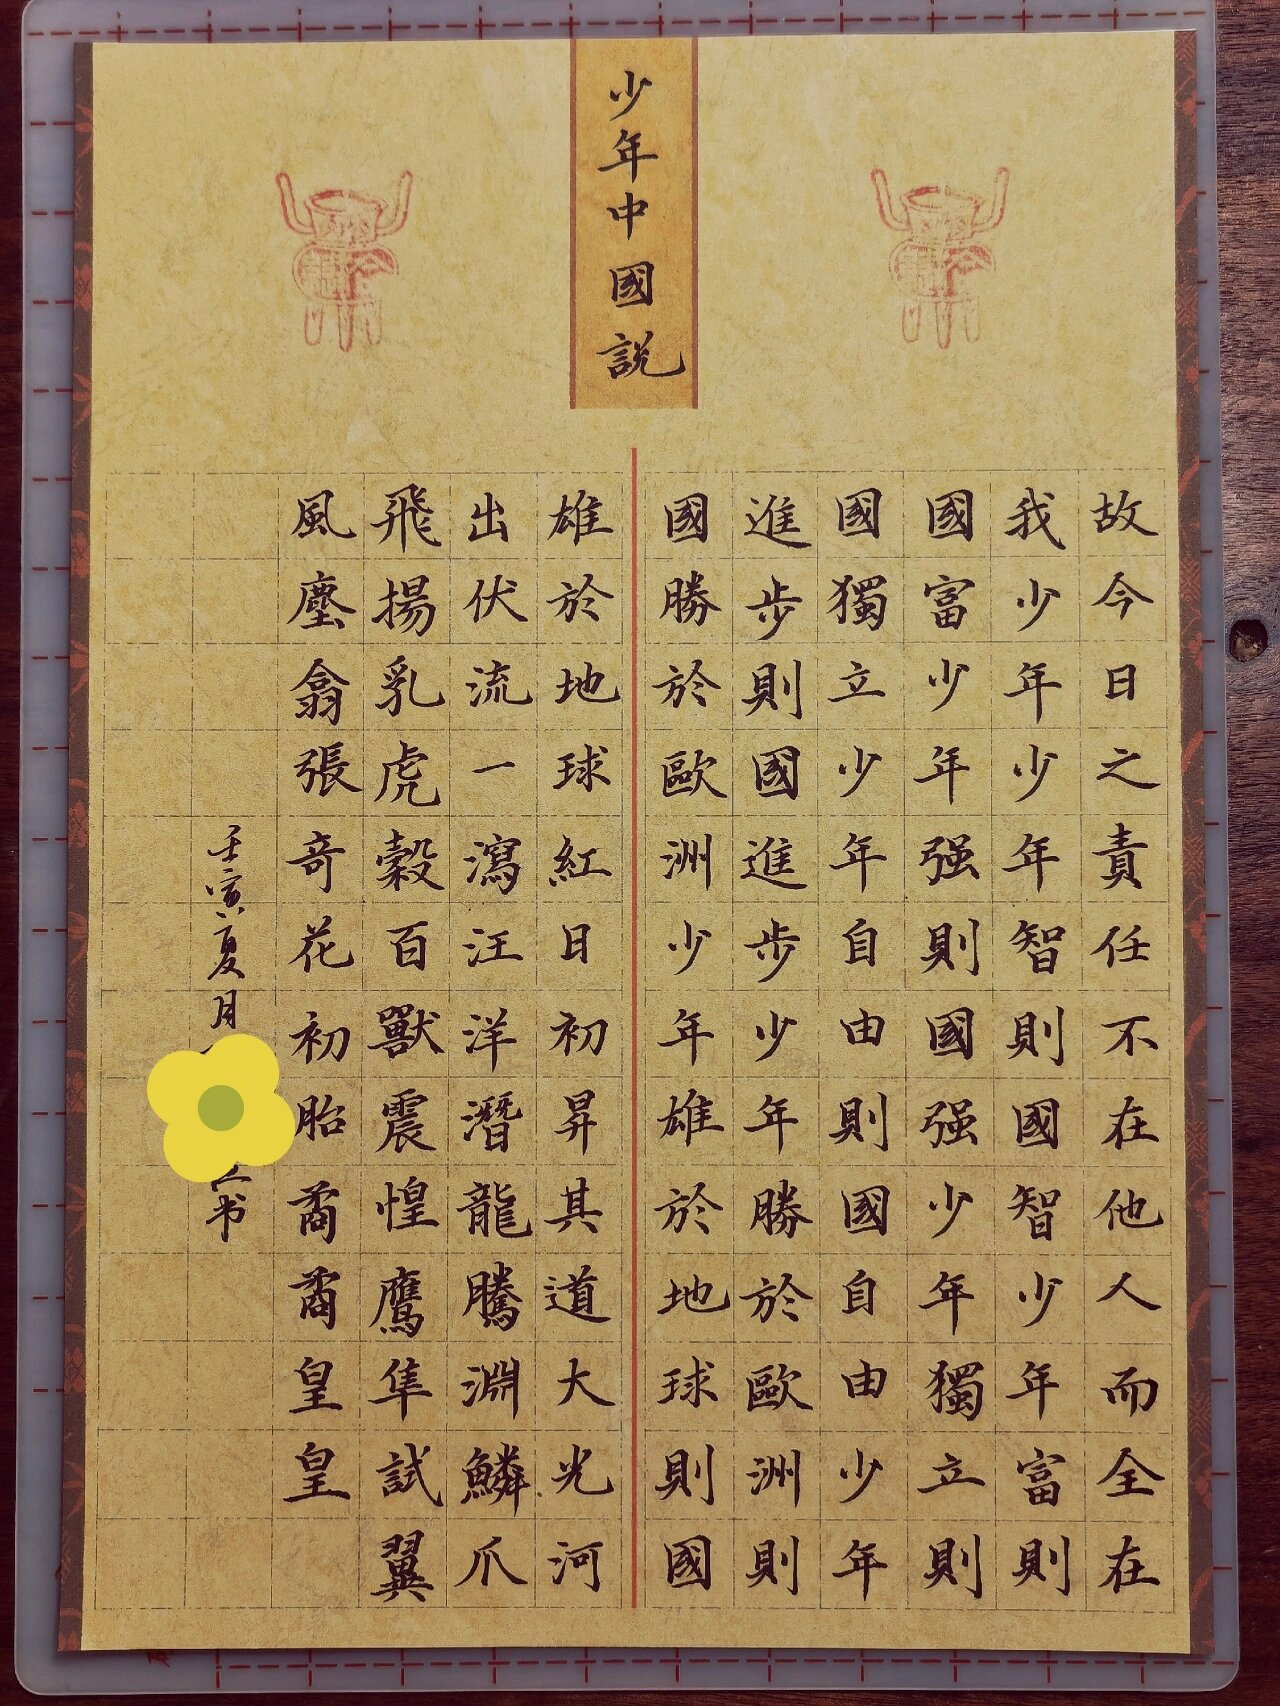 少年中國説
故今日之責任不在他人而全在
我少年少年智則國智少年富則
國富少年强則國强少年獨立則
國獨立少年自由則國自由少年
進步則國進步少年勝於歐洲則
國勝於歐洲少年雄於地球則國
雄於地球紅日初昇其道大光河
出伏流一瀉汪洋潛龍騰淵鱗爪
飛揚乳虎穀百獸震惶鷹隼試翼
風塵翕張奇花初胎矞矞皇皇
壬寅夏月
书